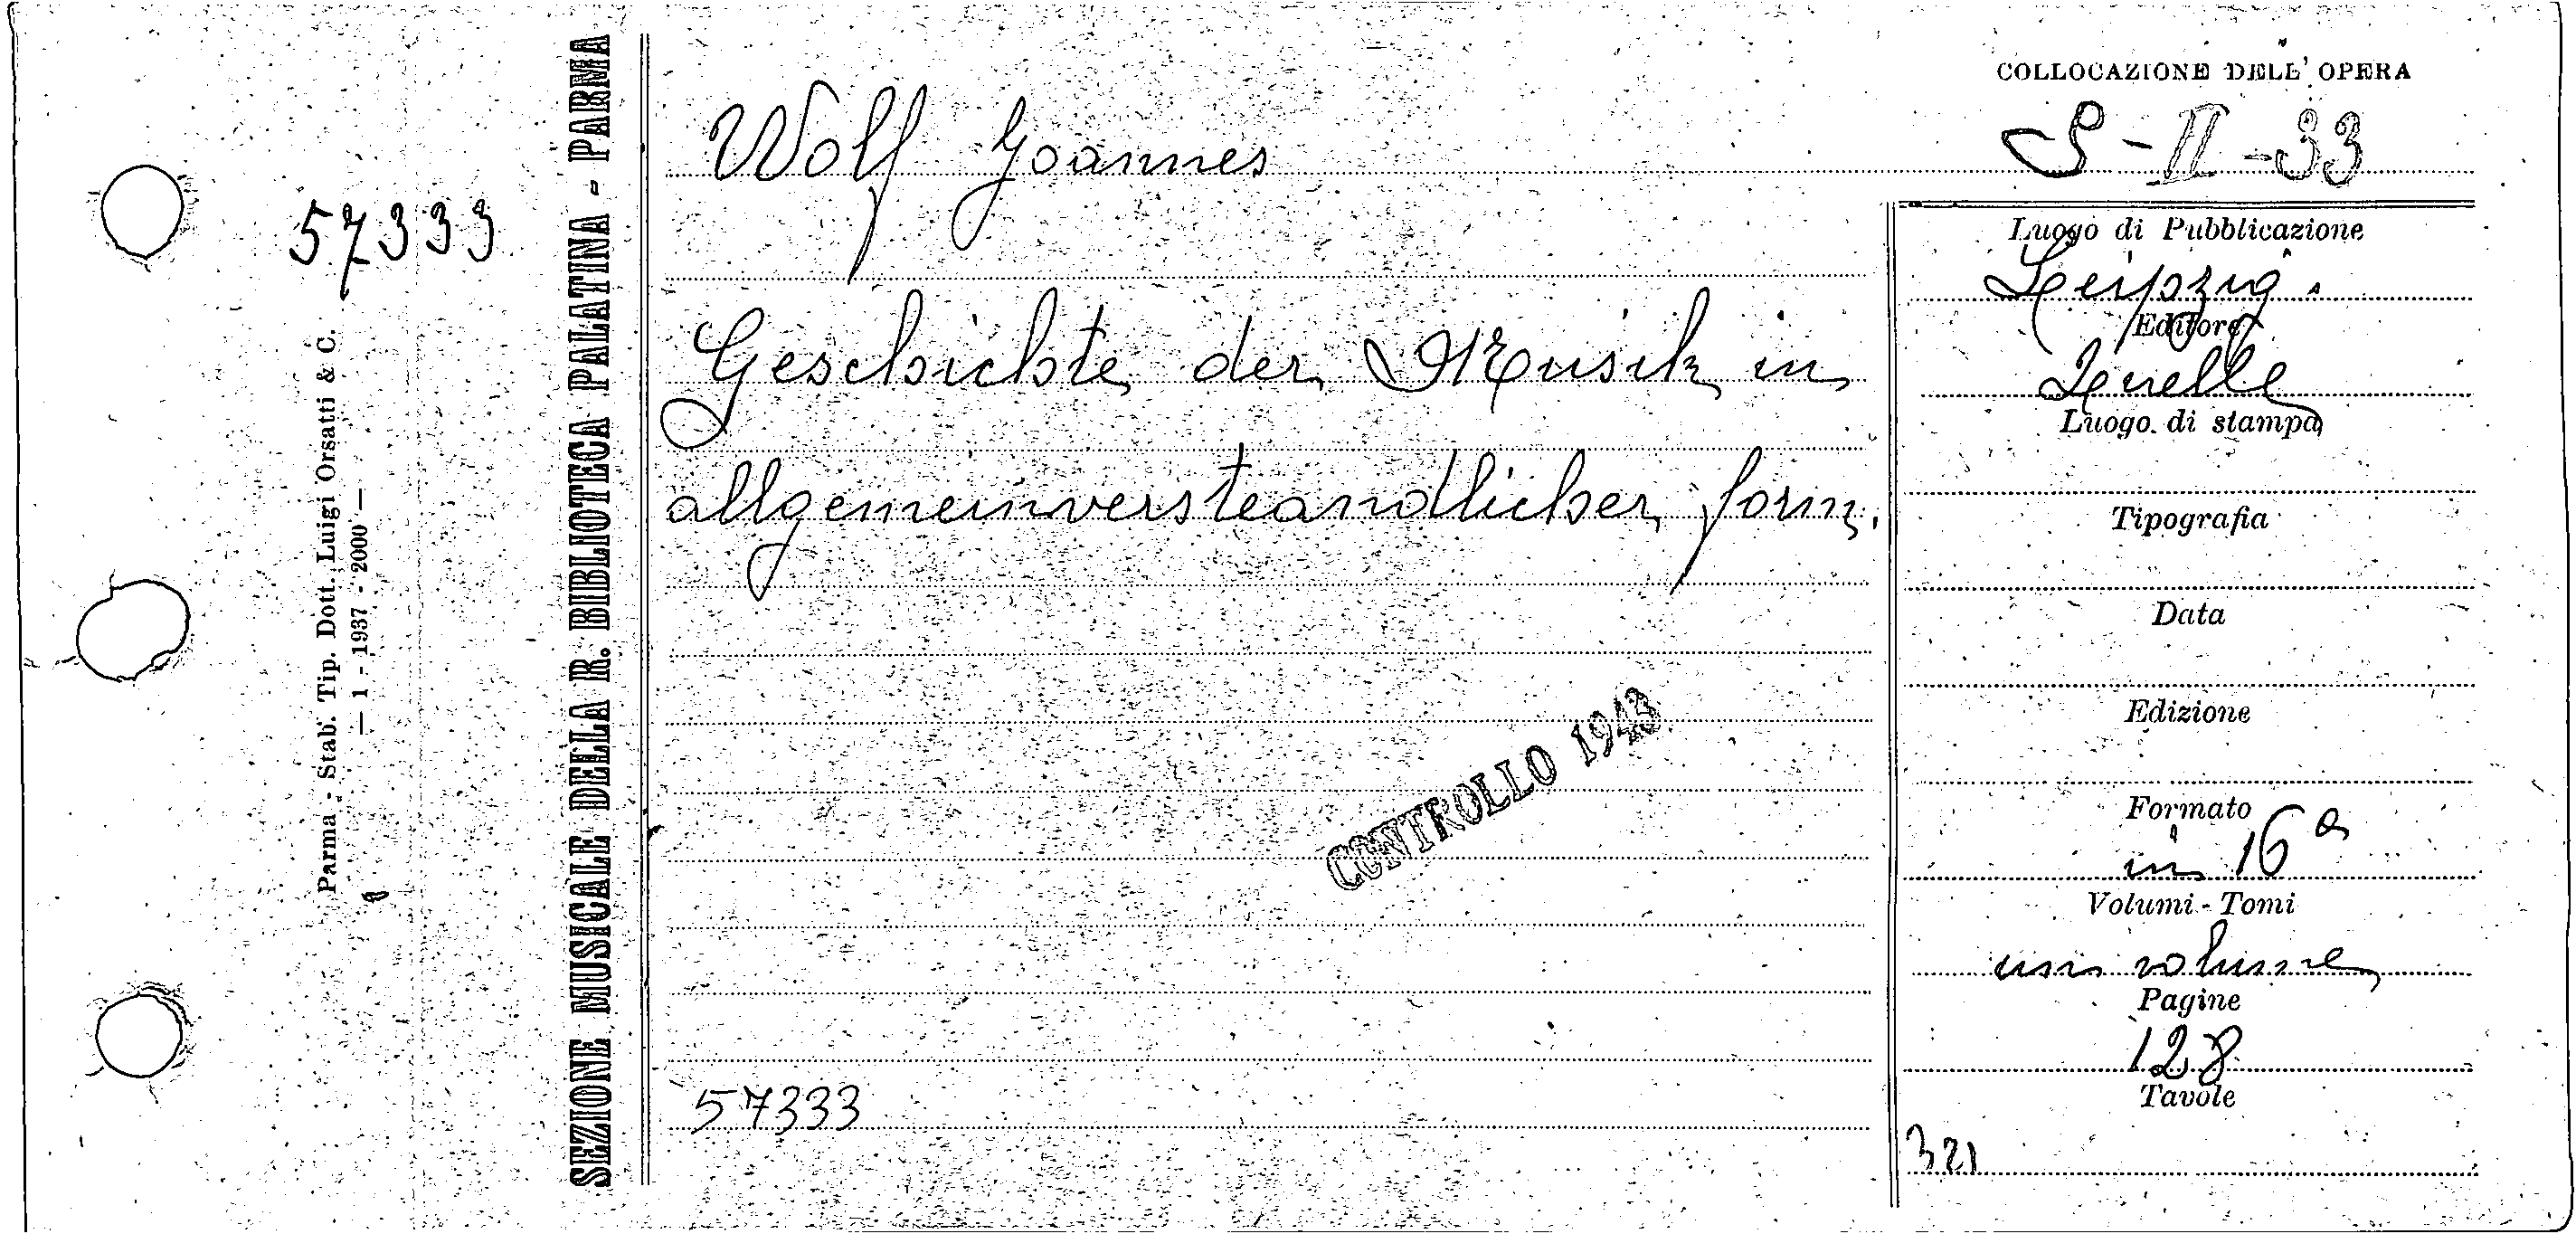 COLLOCAZIONE DELL' OPERA
Wolf Joannes
S - II - 33
57333
Geschichte der Musik in
allgemeinversteandlicher form.
Luogo di Pubblicazione
Leipzig.
Editore
Luogo di stampa
Tipografia
Data
Edizione
Formato
in 16°
Volumi - Tomi
un volume
Pagine
128
Tavole
321
CONTROLLO 1943
57333
SEZIONE MUSICALE DELLA R. BIBLIOTECA PALATINA - PARMA
Parma - Stab. Tip. Dott. Luigi Orsatti & C.
— 1 - 1937 - 2000 —